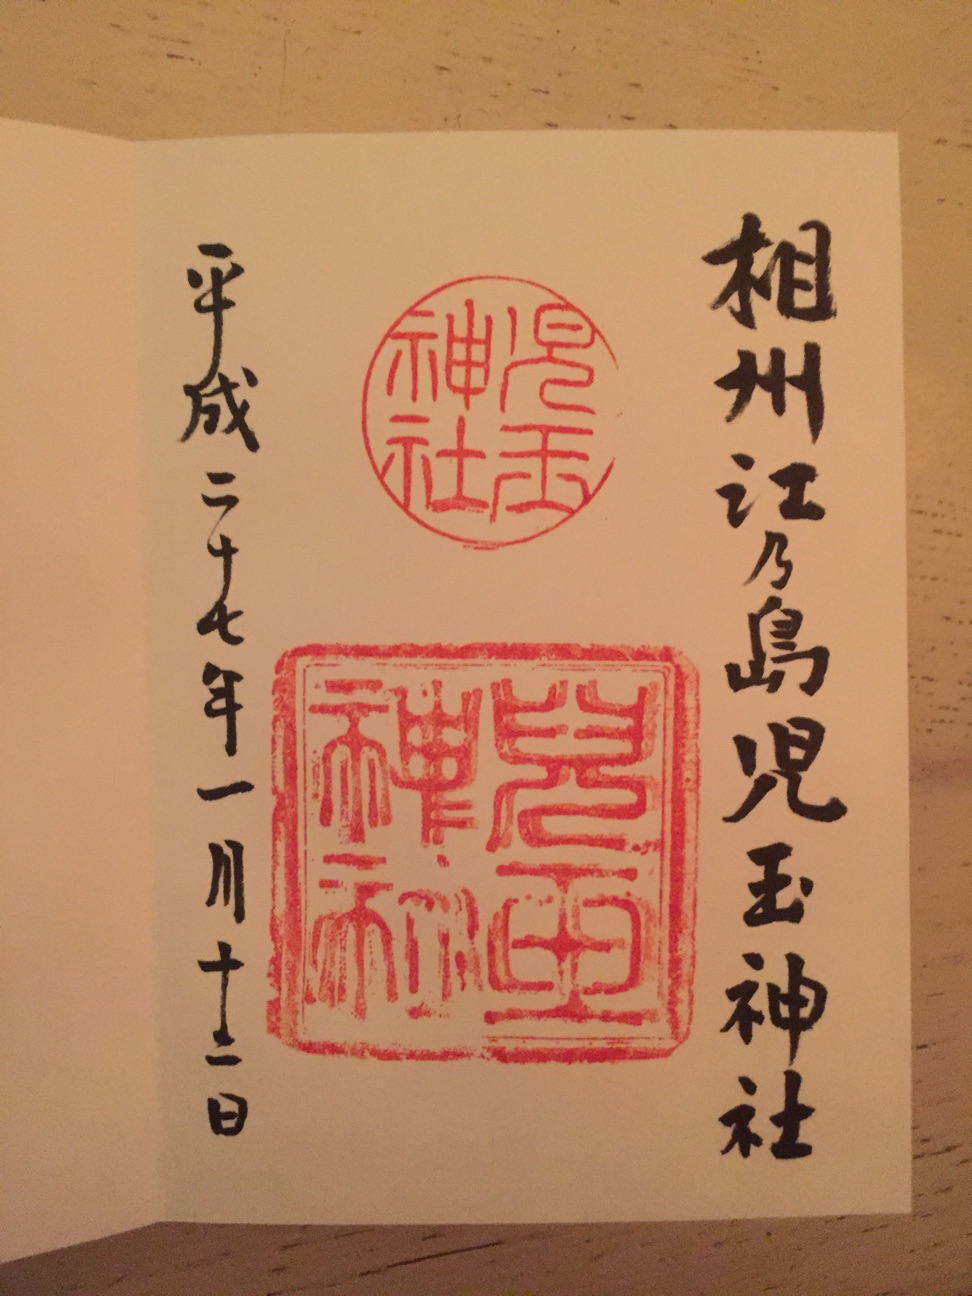 相州江乃島児玉神社
児玉
神社
兒玉
神社
平成二十七年一月十二日